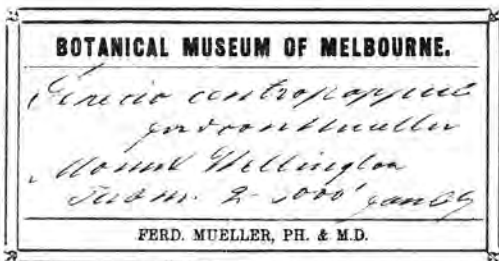 BOTANICAL MUSEUM OF MELBOURNE.
Senecio centropappus
ferd von Mueller
Mount Wellington
Tasm.
FERD. MUELLER, PH. & M.D.